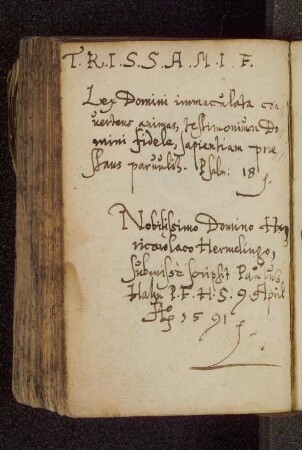 T. R. I. S. S. A. M. I. F.
Lex Domini immaculata con
uertens animas, testimonium Do
mini fidele, sapientiam præ
stans paruulis. Psalm: 18
Nobilissimo Domino Hen
Hermelingo,
submissè scripsit Paulus
P. F. H. S. 9 April
1591